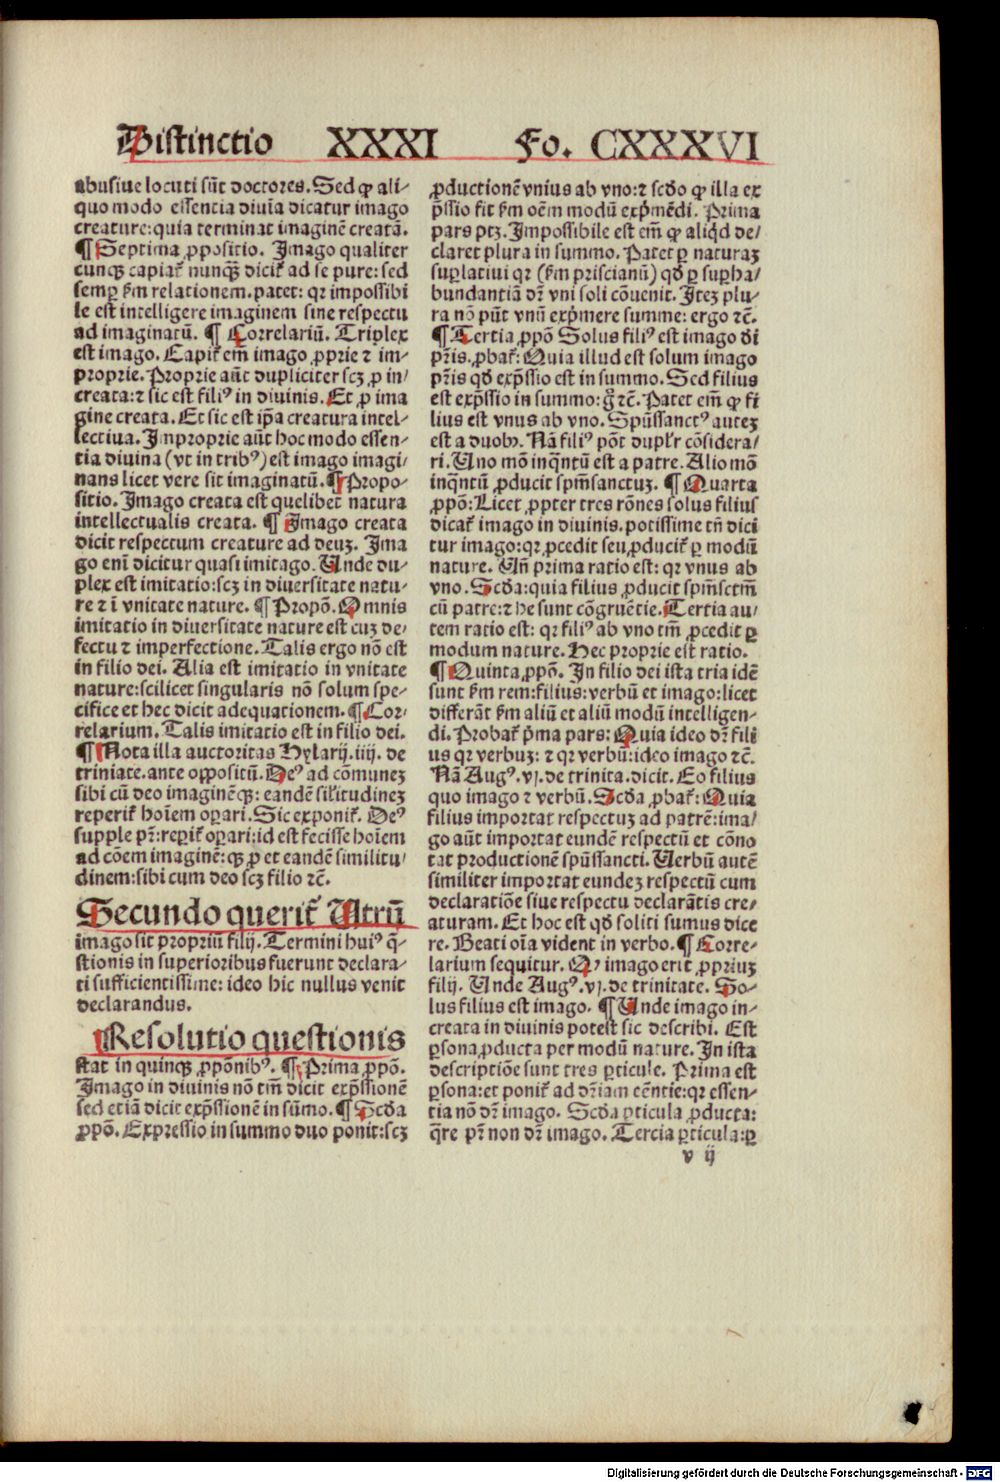 Distinctio XXXI Fo. CXXXVI
abusiue locuti sũt doctores. Sed ꝙ ali⸗
quo modo essentia diuĩa dicatur imago
creature: quia terminat imaginẽ creatã.
¶ Septima ꝓpositio. Imago qualiter
cunqꝫ capiat̃ nunqꝫ̃ dicit̃ ad se pure: sed
semꝑ ẽm relationem. patet: qꝛ impossibi
le est intelligere imaginem sine respectu
ad imaginatũ. ¶ Correlariũ. Triplex
est imago. Capit̃ em̃ imago ꝓprie ⁊ im⸗
proprie. Proprie aũt dupliciter scꝫ ꝓ in⸗
creata: ⁊ sic est filiꝰ in diuinis. Et ꝓ ima
gine creata. Et sic est ip̃a creatura intel⸗
lectiua. Improprie aũt hoc modo essen⸗
tia diuina (vt in tribꝰ) est imago imagi⸗
nans licet vere sit imaginatũ. ¶ Propo⸗
sitio. Imago creata est quelibet natura
intellectualis creata. ¶ Imago creata
dicit respectum creature ad deuꝫ. Ima
go eni dicitur quasi imitago. Unde du⸗
plex est imitatio: scꝫ in diuersitate natu⸗
re ⁊ ĩ vnitate nature. ¶ Propõ. Omnis
imitatio in diuersitate nature est cuꝫ de⸗
fectu ⁊ imperfectione. Talis ergo nõ est
in filio dei. Alia est imitatio in vnitate
nature: scilicet singularis nõ solum spe⸗
cifice et hec dicit adequationem. ¶ Cor⸗
relarium. Talis imitatio est in filio dei.
¶ Nota illa auctoritas Hylarij. iiij. de
triniate. ante opposituũ. Deꝰ ad cõmuneꝫ
sibi cũ deo imaginẽqꝫ: eandẽ sil̃itudineꝫ
reperit̃ hoĩem oꝑari. Sic exponit̃. Deꝰ
supple pr̃: reꝑit̃ oꝑari: id est fecisse hoĩem
ad cõem imaginẽ: qꝫ ꝓ et eandẽ similitu⸗
dinem: sibi cum deo scꝫ filio ⁊c̃.
Secundo querit̃ Utrũ
imago sit propriũ filij. Termini huiꝰ q̃⸗
stionis in superioribus fuerunt declara⸗
ti sufficientissime: ideo hic nullus venit
declarandus.
¶ Resolutio questionis
stat in quinqꝫ ꝓpõnibꝰ. ¶ Prima ꝓpõ.
Imago in diuinis nõ tm̃ dicit exp̃ssionẽ
sed etiã dicit exp̃ssionẽ in sũmo. ¶ Scd̃a
ꝓpõ. Expressio in summo duo ponit: scꝫ
ꝓductionẽ vnius ab vno: ⁊ scdo ꝙ illa ex
p̃ssio sit ẽm oẽm modũ exp̃mẽdi. Prima
pars ptꝫ. Impossibile est em̃ ꝙ aliq̃d de⸗
claret plura in summo. Patet ꝑ naturaꝫ
suꝑlatiui qꝛ (ẽm priscianũ) qd̃ ꝑ suꝑha⸗
bundantiã dr̃ vni soli cõuenit. Iteꝫ plu⸗
ra nõ pñt vnũ exp̃mere summe: ergo ⁊c̃.
¶ Tertia ꝓpõ Solus filiꝰ est imago di
pr̃is. ꝓbat̃: Quia illud est solum imago
pr̃is qd̃ exp̃ssio est in summo. Sed filius
est exp̃ssio in summo: g̃ ⁊c̃. Patet em̃ ꝙ fi
lius est vnus ab vno. Spũssanctꝰ auteꝫ
est a duobꝫ. Nã filiꝰ põt dupl̃r cõsidera⸗
ri. Uno mõ inq̃ntũ est a patre. Alio mõ
inq̃ntũ ꝓducit spm̃sanctuꝫ. ¶ Quarta
ꝓpõ: Licet ꝓpter tres rõnes solus filius
dicat̃ imago in diuinis. potissime tñ dici
tur imago: qꝛ ꝓcedit seu ꝓducit̃ ꝑ modũ
nature. Uñ prima ratio est: qꝛ vnus ab
vno. Scd̃a: quia filius ꝓducit spm̃sctm̃
cũ patre: ⁊ he sunt cõgruẽtie. Tertia au⸗
tem ratio est: qꝛ filiꝰ ab vno tm̃ ꝓcedit ꝑ
modum nature. Hec proprie est ratio.
¶ Quinta ꝓpõ. In filio dei ista tria idẽ
sunt ẽm rem: filius: verbũ et imago: licet
differãt ẽm aliũ et aliũ modũ intelligen⸗
di. Probat̃ p̃ma pars: Quia ideo dr̃ fili
us qꝛ verbuꝫ: ⁊ qꝛ verbũ: ideo imago ⁊c̃.
Nã Augꝰ. vj. de trinita. dicit. Eo filius
quo imago ⁊ verbũ. Scd̃a ꝓbat̃: Quia
filius importat respectuꝫ ad patrẽ: ima⸗
go aũt importat eundẽ respectũ et cõno
tat productionẽ spũssancti. Uerbũ autẽ
similiter importat eundeꝫ respectũ cum
declaratiõe siue respectu declarãtis cre⸗
aturam. Et hoc est qd̃ soliti sumus dice
re. Beati oĩa vident in verbo. ¶ Corre⸗
larium sequitur. Qꝫ imago erit ꝓpriuꝫ
filij. Unde Augꝰ. vj. de trinitate. So⸗
lus filius est imago. ¶ Unde imago in⸗
creata in diuinis potest sic describi. Est
ꝑsona ꝓducta per modũ nature. In ista
descriptiõe sunt tres ꝑticule. Prima est
ꝑsona: et ponit̃ ad dr̃iam eẽntie: qꝛ essen⸗
tia nõ dr̃ imago. Scd̃a ꝑticula ꝓducta:
q̃re pr̃ non dr̃ imago. Tercia ꝑticula: ꝑ
v ij
Digitalisierung gefördert durch die Deutsche Forschungsgemeinschaft - DFG